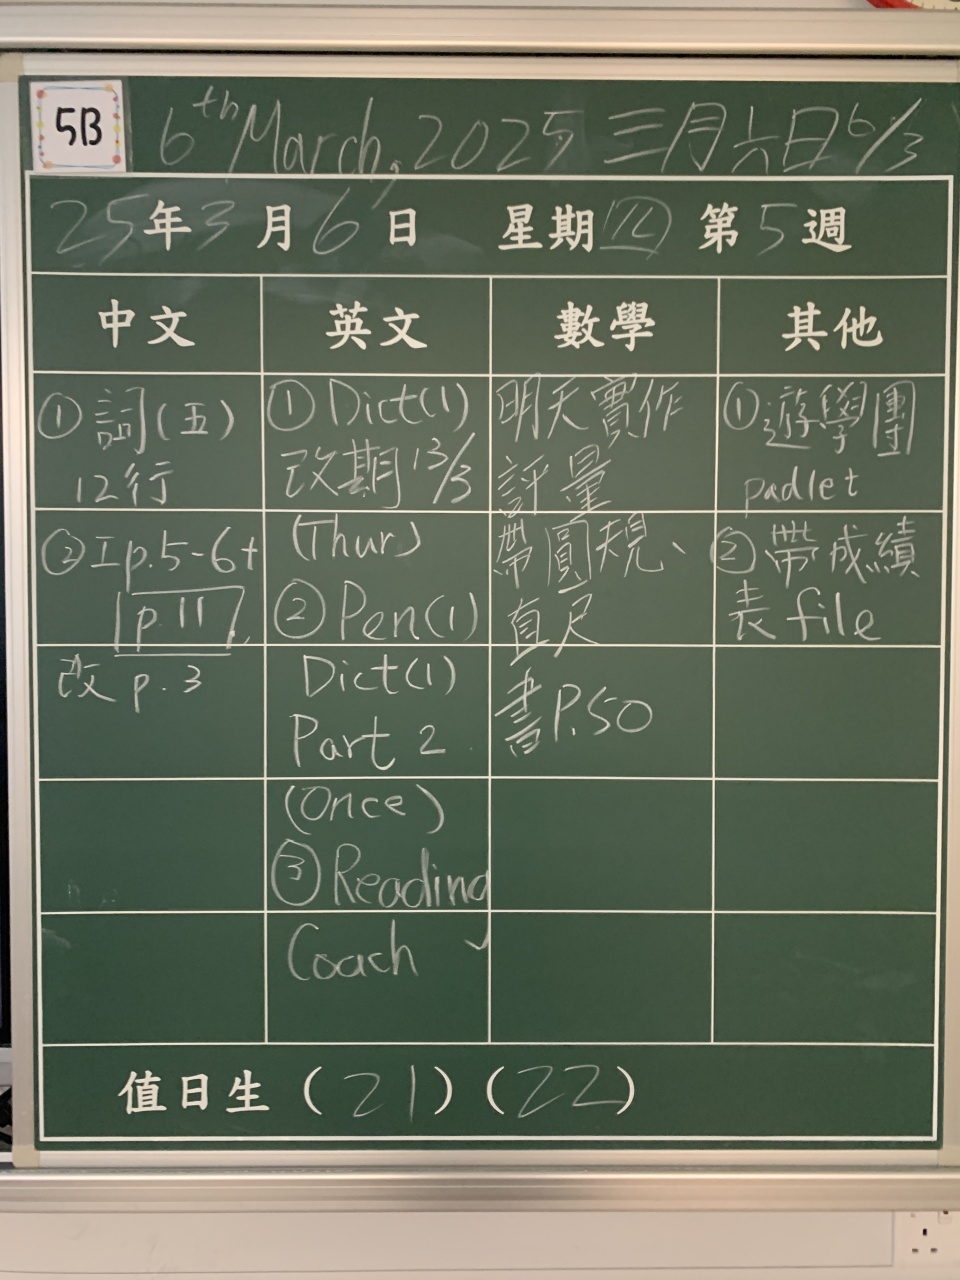 5B
6th March, 2025 三月六日 6/3
25年3月6日 星期四 第5週
中文 英文 數學 其他
① 詞(五)
12行
② I p.5-6+
p.11
改 p.3
① Dict(1)
改期 13/3
(Thur)
② Pen(1)
Dict(1)
Part 2
(Once)
③ Reading
Coach
明天實作
評量
帶圓規、
直尺
書P.50
① 遊學團
padlet
② 帶成績
表 file
值日生(21)(22)